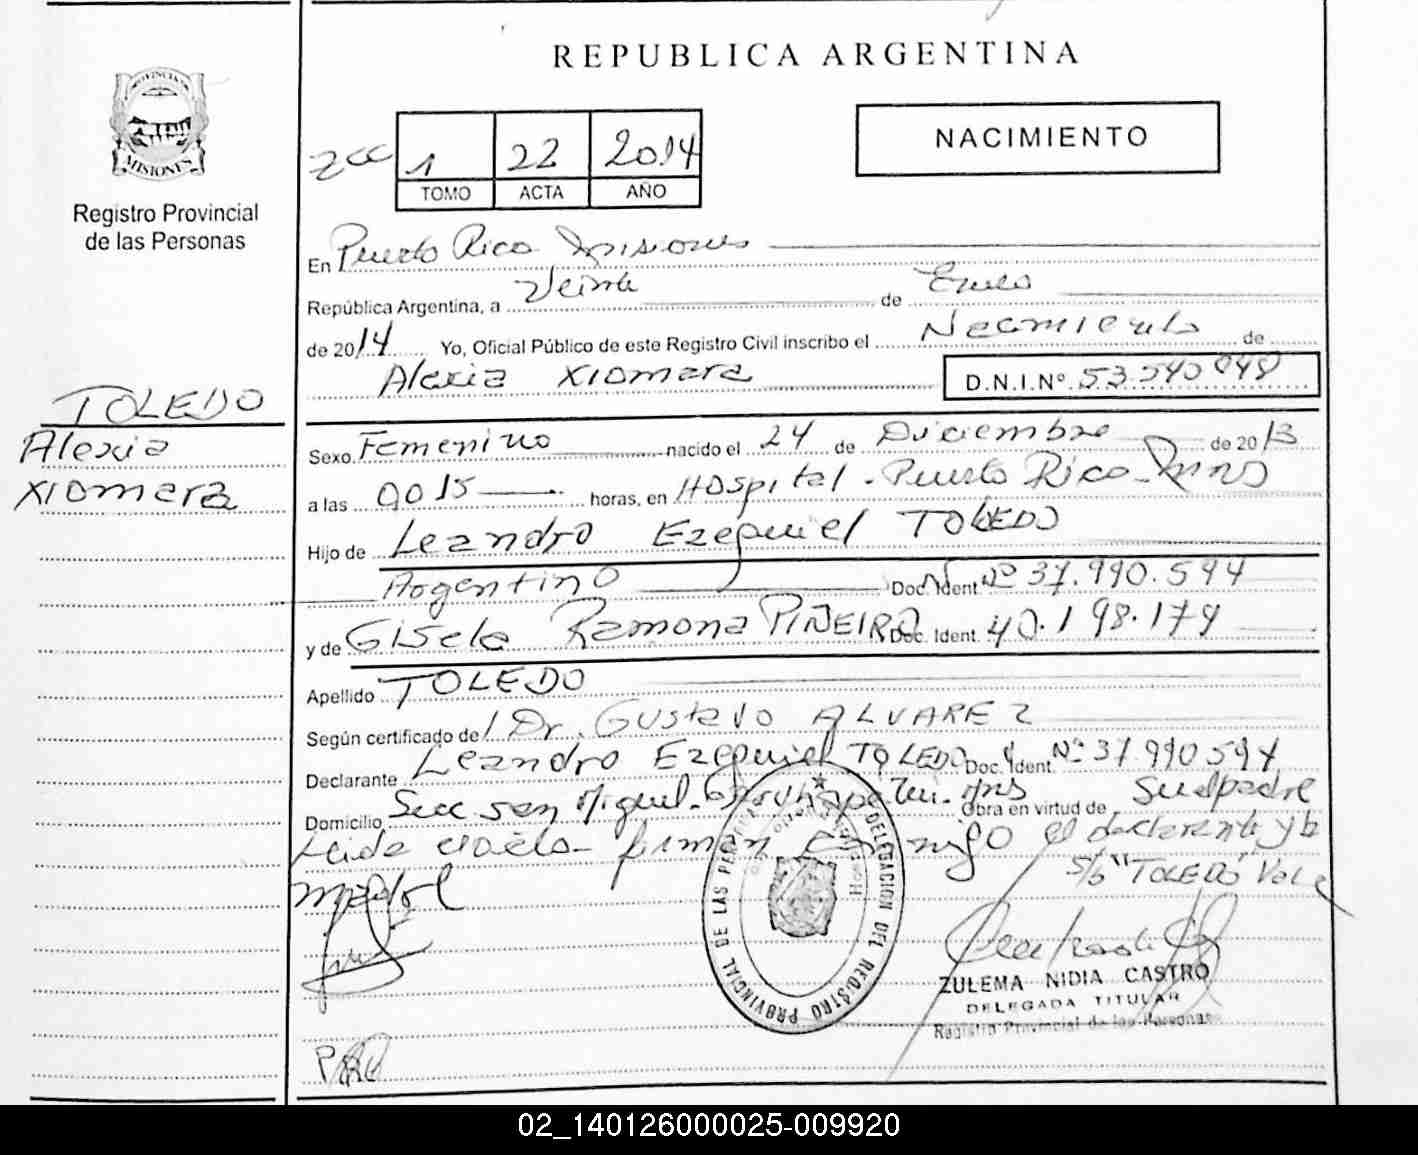 REPUBLICA ARGENTINA
PROVINCIA DE
MISIONES
Registro Provincial
de las Personas
NACIMIENTO
1 22 2014
TOMO ACTA AÑO
En Puerto Rico Misiones
República Argentina, a Veinte de Enero
de 2014 Yo, Oficial Público de este Registro Civil inscribo el Nacimiento de
Alexia Xiomara D.N.I.Nº 53.540.048
TOLEDO
Alexia
Xiomara
Sexo Femenino nacido el 24 de Diciembre de 2013
a las 0015 horas, en Hospital - Puerto Rico - Mnes
Hijo de Leandro Ezequiel TOLEDO
Argentino Doc. Ident. Nº 37.990.594
y de Gisela Ramona PIÑEIRO Doc. Ident. 40.198.179
Apellido TOLEDO
Según certificado del Dr. Gustavo ALVAREZ
Declarante Leandro Ezequiel TOLEDO Doc. Ident. Nº 37.990.594
Domicilio Secc San Miguel - Garuhape - Mns Obra en virtud de Su el padre
Leida el acta - firman conmigo el declarante y la
madre S/b "TOLEDO" Vale
DELEGACION DEL REGISTRO PROVINCIAL DE LAS
ZULEMA NIDIA CASTRO
DELEGADA TITULAR
Registro Provincial de las Personas
02_140126000025-009920